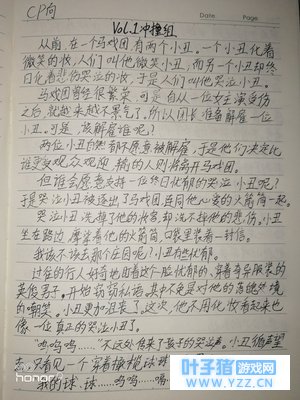 CP向
Date. Page.
Vol.1 冲撞组
从前,在一个马戏团有两个小丑。一个小丑化着
微笑的妆,人们叫他微笑小丑,而另一个小丑却终
日化着悲伤哭泣的妆,于是人们叫他哭泣小丑。
马戏团曾经很繁荣,可是自从一位女主演受伤
之后,就越来越不景气了,所以团长准备解雇一位
小丑。可是,该解雇谁呢?
两位小丑自然都不愿意被解雇,于是他们决定比
谁更受观众欢迎,输的人则将离开马戏团。
但谁会愿意支持一位终日忧郁的哭泣小丑呢?
于是哭泣小丑被逐出了马戏团,连同他心爱的火箭筒一起。
哭泣小丑洗掉了他的妆容,却洗不掉他的悲伤。小丑
坐在路边,摩挲着他的火箭筒,口袋里装着一封信。
我该不该去那个庄园呢?小丑有些忧郁。
过往的行人好奇地围着这个一脸忧郁的、穿着奇异服装的
英俊男子。开始窃窃私语,其中不免是对他的落魄处境
的嘲笑。小丑更加沮丧了,这次,他不用化妆看起来也
像一位真正的哭泣小丑了。
“呜呜呜……”不远处传来了孩子的哭泣声。小丑循声望
去,只看见一个穿着橄榄球球
我的球,球……呜呜……嗝
honor
叶子猪游戏网
www.YZZ.CN